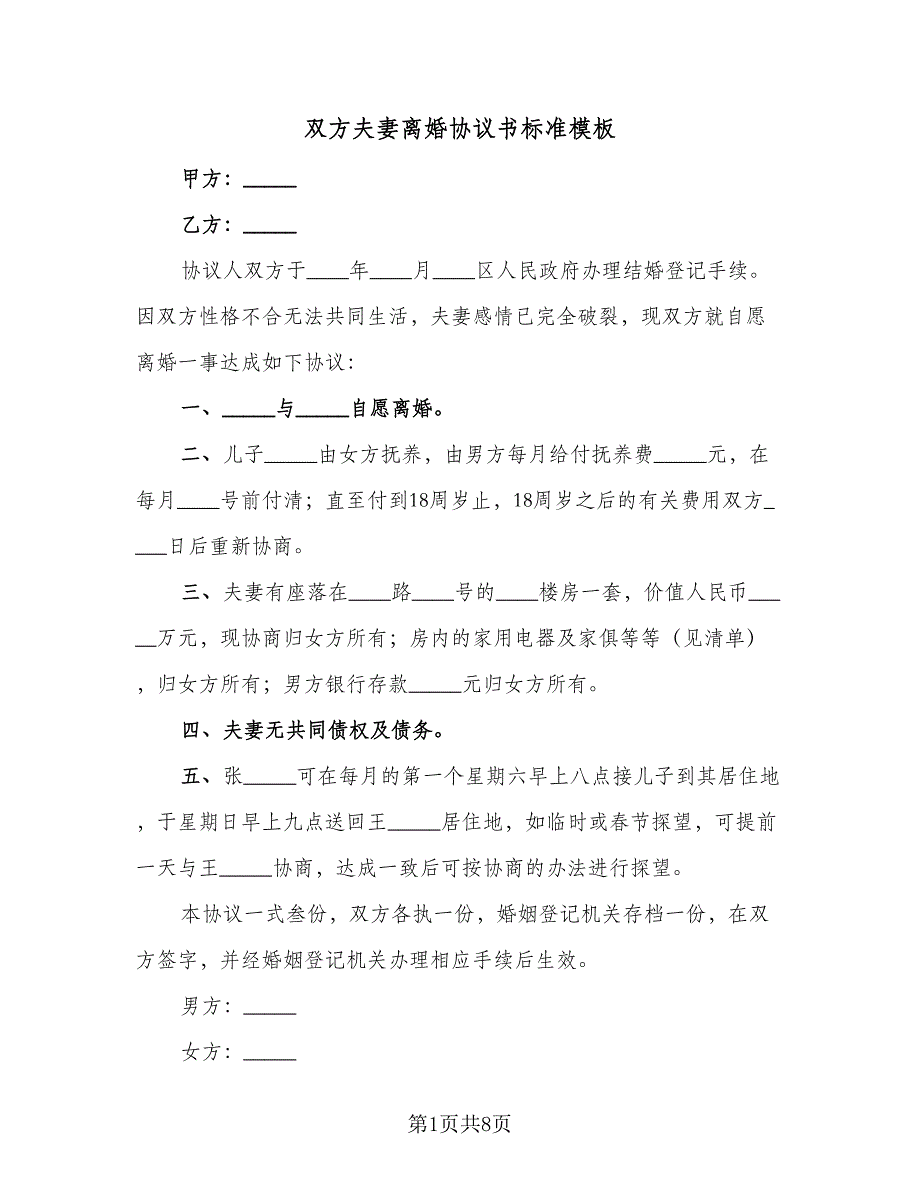 双方夫妻离婚协议书标准模板
甲方：_____
乙方：_____
协议人双方于____年____月____区人民政府办理结婚登记手续。
因双方性格不合无法共同生活，夫妻感情已完全破裂，现双方就自愿
离婚一事达成如下协议：
一、_____与_____自愿离婚。
二、儿子_____由女方抚养，由男方每月给付抚养费_____元，在
每月____号前付清；直至付到18周岁止，18周岁之后的有关费用双方_
___日后重新协商。
三、夫妻有座落在____路____号的____楼房一套，价值人民币___
__万元，现协商归女方所有；房内的家用电器及家俱等等（见清单）
，归女方所有；男方银行存款_____元归女方所有。
四、夫妻无共同债权及债务。
五、张_____可在每月的第一个星期六早上八点接儿子到其居住地
，于星期日早上九点送回王_____居住地，如临时或春节探望，可提前
一天与王_____协商，达成一致后可按协商的办法进行探望。
本协议一式叁份，双方各执一份，婚姻登记机关存档一份，在双
方签字，并经婚姻登记机关办理相应手续后生效。
男方：_____
女方：_____
第1页共8页